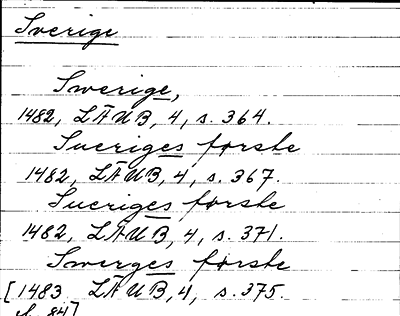 Sverige
Swerige,
1482, LÄUB, 4, s. 364.
Sueriges førstæ
1482, LÄUB, 4, s. 367.
Sueriges førstæ
1482, LÄUB, 4, s. 371.
Swerges førstæ
[1483 LÄUB, 4, s. 375.
84]